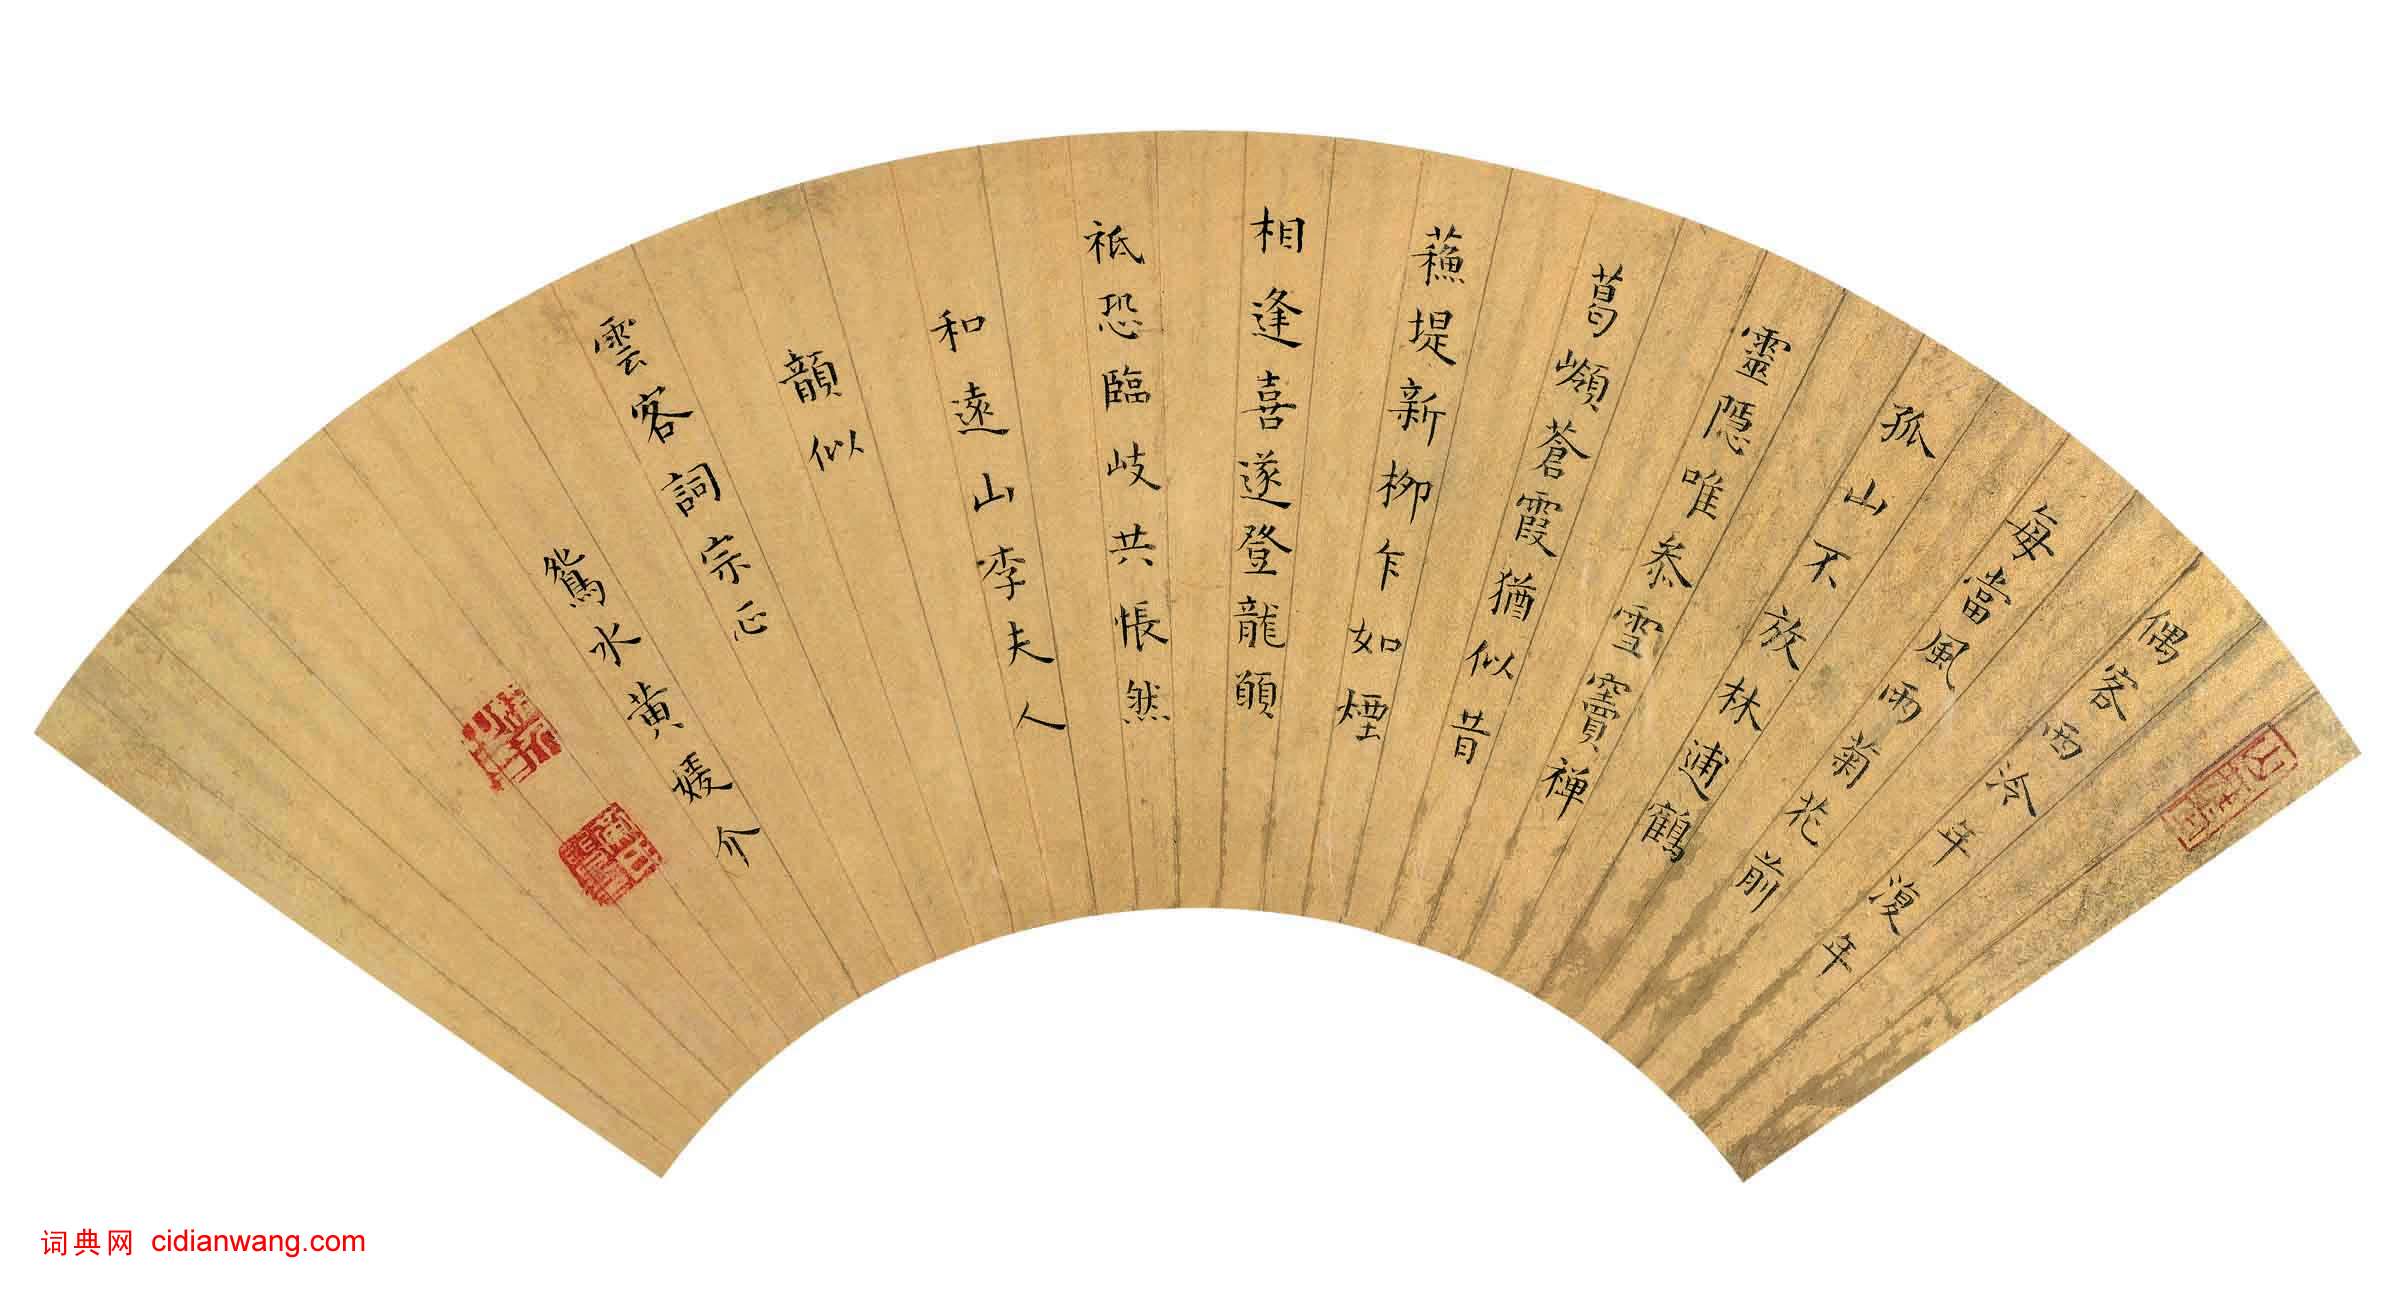 偶客西泠年復年
每當風雨菊花前
孤山不放林逋鶴
靈隱唯叅雪竇禪
葛嶺蒼霞猶似昔
蘓堤新柳乍如煙
相逢喜遂登龍願
祗恐臨岐共悵然
和遠山李夫人
韻似
雲客詞宗正
鴛水黃媛介
词典网 cidianwang.com